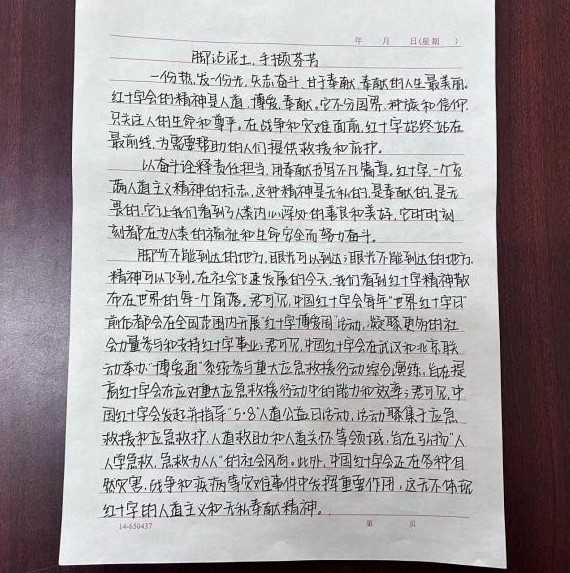 年 月 日(星期 )
脚沾泥土,手撷芬芳
一份热,发一份光,矢志奋斗,甘于奉献,奉献的人生最美丽。
红十字会的精神是人道,博爱,奉献。它不分国界,种族和信仰,
只关注人的生命和尊严。在战争和灾难面前,红十字始终站在
最前线,为需要帮助的人们提供救援和庇护。
以奋斗诠释责任担当,用奉献书写不凡篇章。红十字,一个充
满人道主义精神的标志,这种精神是无私的,是奉献的,是无
畏的,它让我们看到了人类内心深处的善良和美好,它时时刻
刻都在为人类的福祉和生命安全而努力奋斗。
脚步不能到达的地方,眼光可以到达;眼光不能到达的地方,
精神可以飞到。在社会飞速发展的今天,我们看到红十字精神散
布在世界的每一个角落。君可见,中国红十字会每年"世界红十字日"
前后都会在全国范围内开展"红十字博爱周"活动,凝聚更多的社
会力量参与和支持红十字事业;君可见,中国红十字会在武汉和北京联
动举办"博爱通"系统参与重大应急救援行动综合演练,旨在提
高红十字会在应对重大应急救援行动中的能力和效率;君可见,中
国红十字会发起并指导"5·8"人道公益日活动,活动聚集于应急
救援和应急救护,人道救助和人道关怀等领域,旨在弘扬"人
人学急救,急救为人人"的社会风尚。此外,中国红十字会还在各种自
然灾害,战争和疾病等灾难事件中发挥重要作用,这无不体现
红十字的人道主义和无私奉献精神。
14-650437 第 页